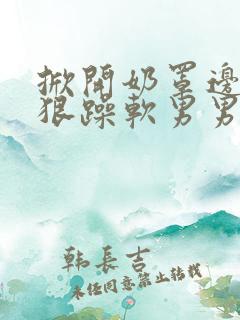 掀開奶罩邊
狠躁軟男男
韩長吉
未任同意禁止转载